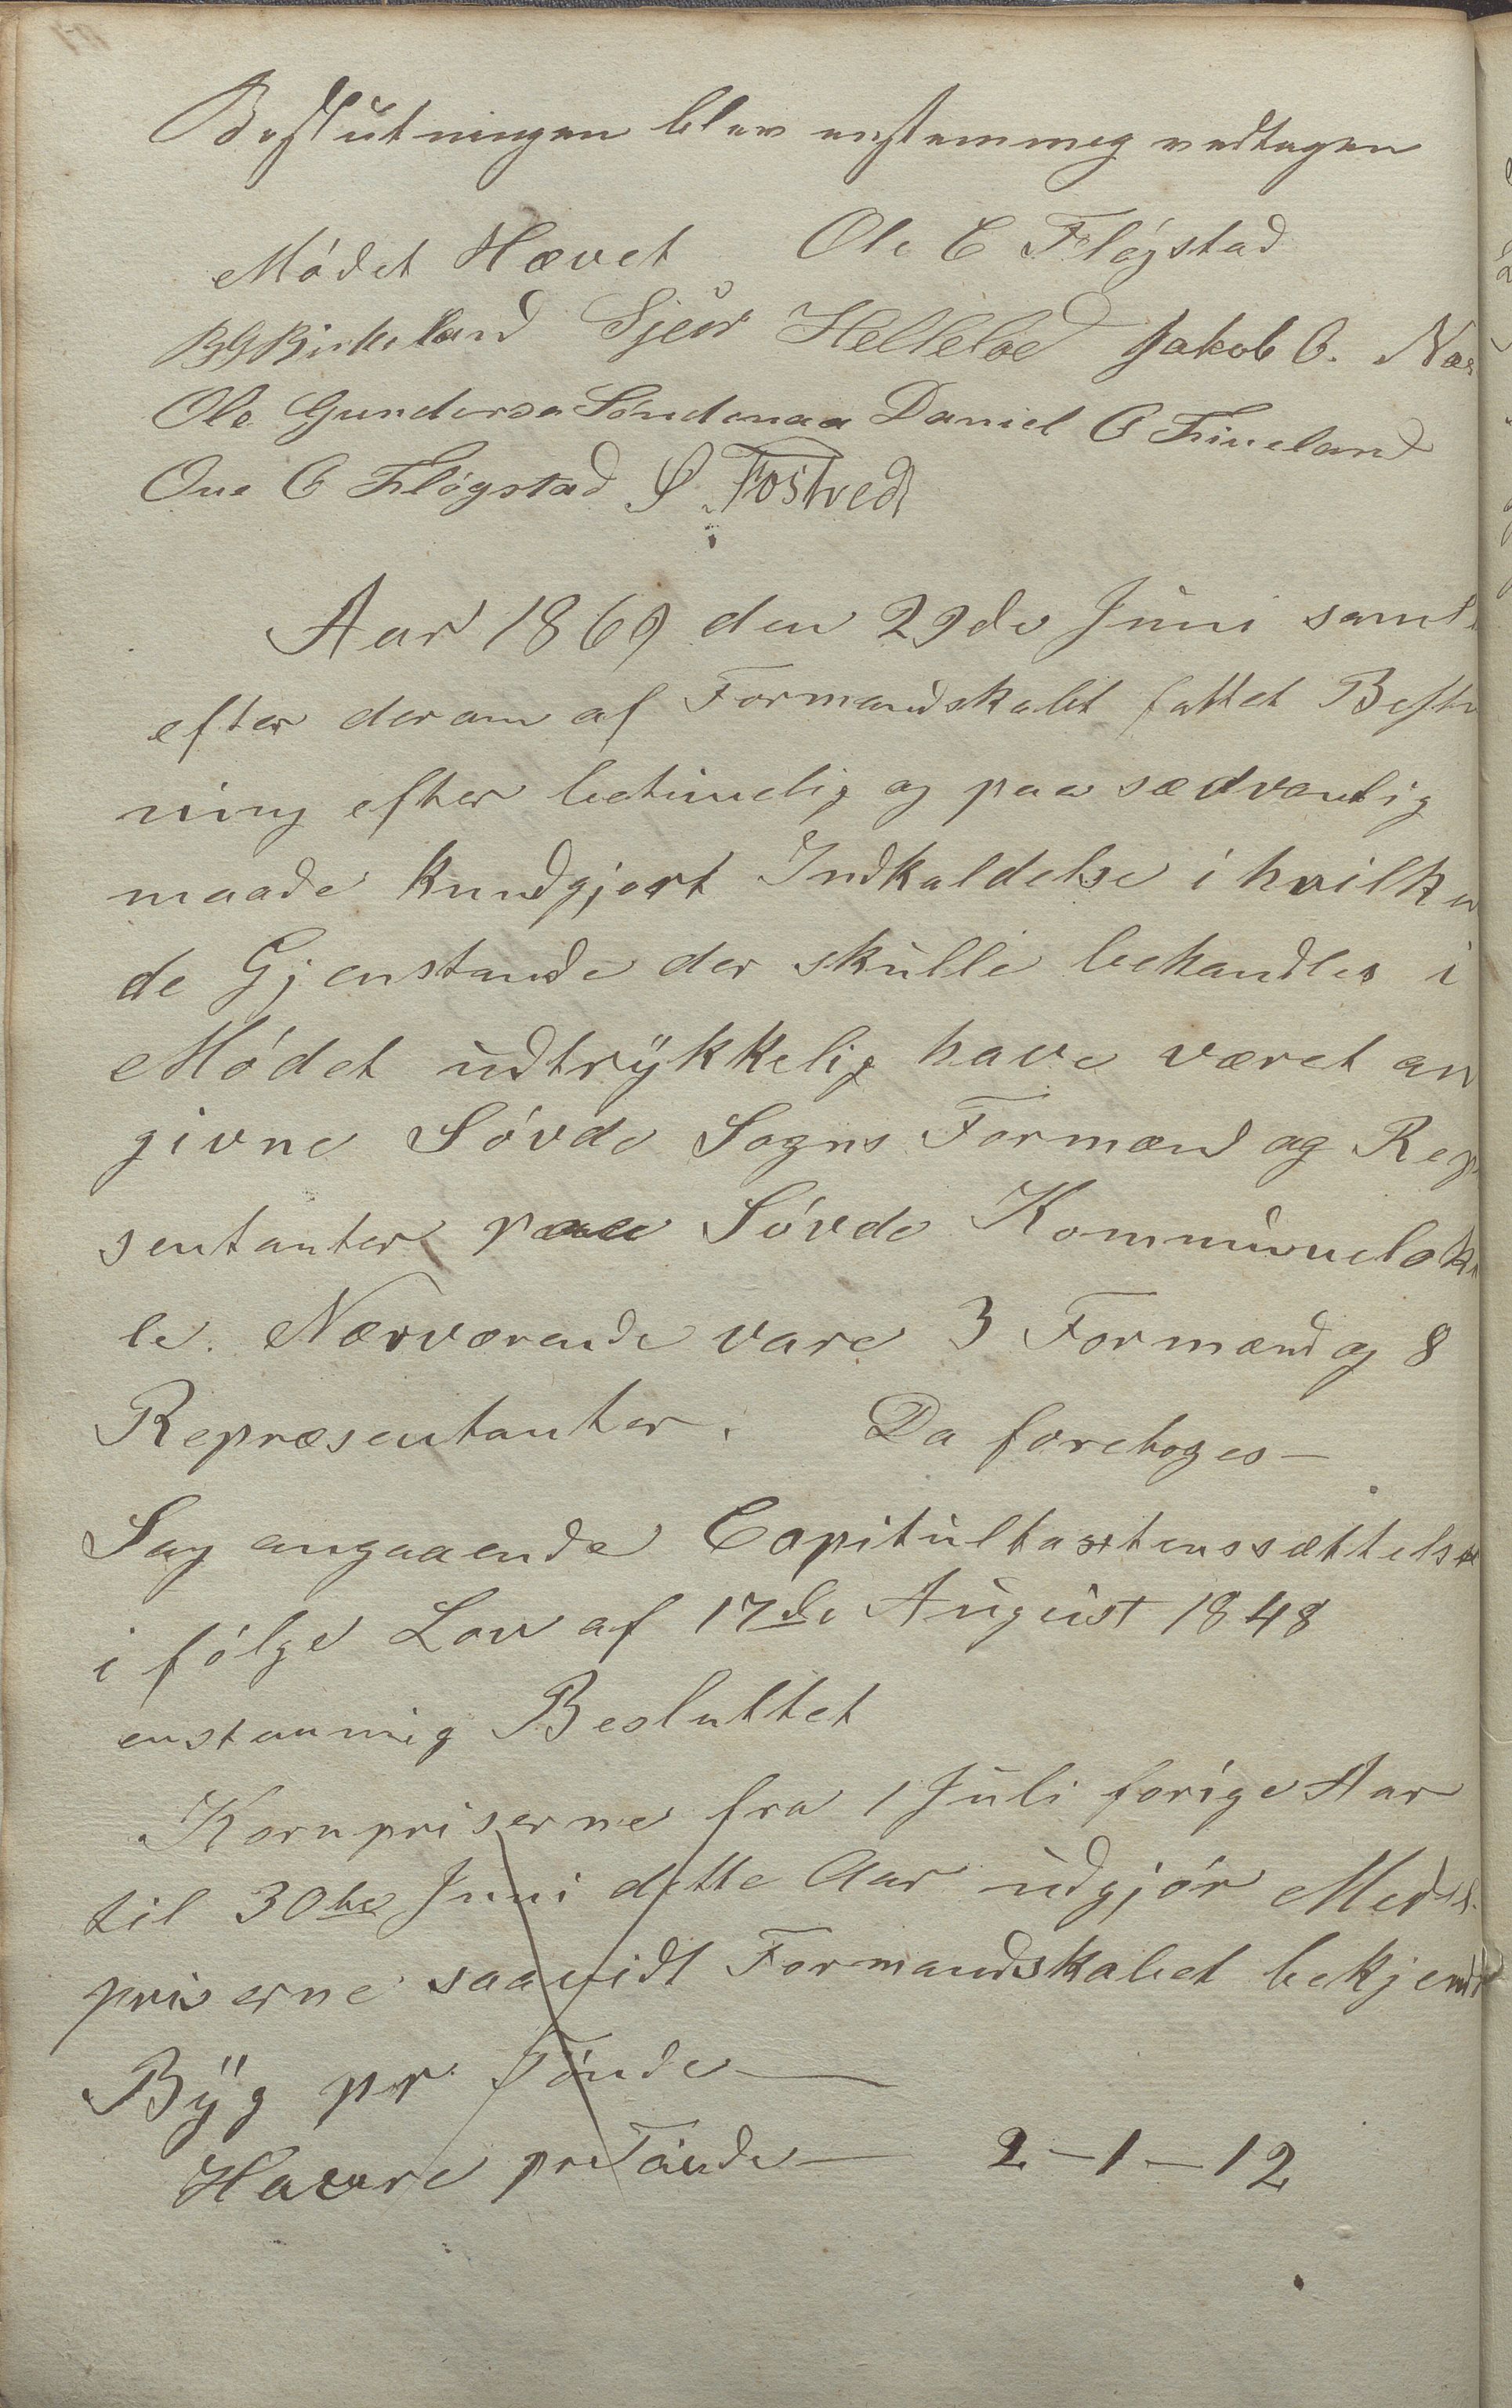 Beslutningen blev enstemmig vedtagen
Mödet Hævet Ole C Flögstad
BGBirkeland Sjur Helleloe Jakob O. Næs
Ole Gundersen Söndenaa Daniel O Fiveland
Ove O Flögstad S. Fostved
Aar 1869 den 29de Juni saml
efter derom af Formandskabet fattet Beslu
ning efter betimelig og paa sædvanlig
maade kundgjort Indkaldelse i hvilken
de Gjenstande der skulle behandles i
Mödet udtrykkelig have været an
givne Sövde Sogns Formænd og Rep
sentanter paa Sövde Kommunelok
le. Nærværende vare 3 Formænd og 8
Repræsentanter. Da foretoges –
Sag angaaende Capitultaxtenssættelse
i fölge Lov af 17de August 1848
enstemmig Besluttet
Kornpriserne fra 1 Juli forige Aar
til 30te Juni dette Aar udgjör Medel
priserne saavidt Formandskabet bekjendt
Byg pr Tönde —
Havre pr Tönde — 2 – 1 – 12